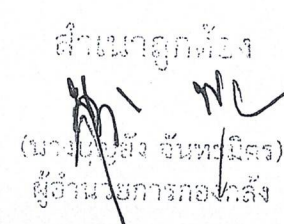 สำเนาถูกต้อง
(นางบุญลัง จันทรมิตร)
ผู้อำนวยการกองคลัง